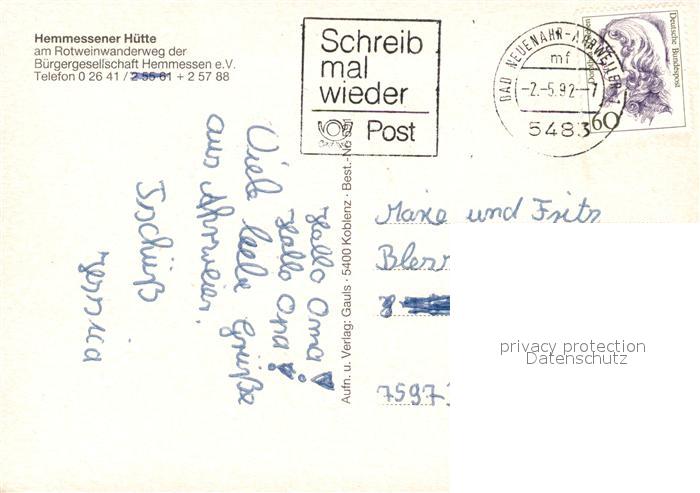 Hemmessener Hütte
am Rotweinwanderweg der
Bürgergesellschaft Hemmessen e.V.
Telefon 0 26 41 / 2 55 61 + 2 57 88
Schreib
mal
wieder
Post
BAD NEUENAHR-AHRWEILER 1
mf
-2.-5.92--7
5483
Deutsche Bundespost
60
Hallo Oma!
Hallo Opa!
Viele liebe Grüße
aus Ahrweiler.
Tschüß
Aufn. u. Verlag: Gauls · 5400 Koblenz · Best.-No
und Fritz
7597
privacy protection
Datenschutz